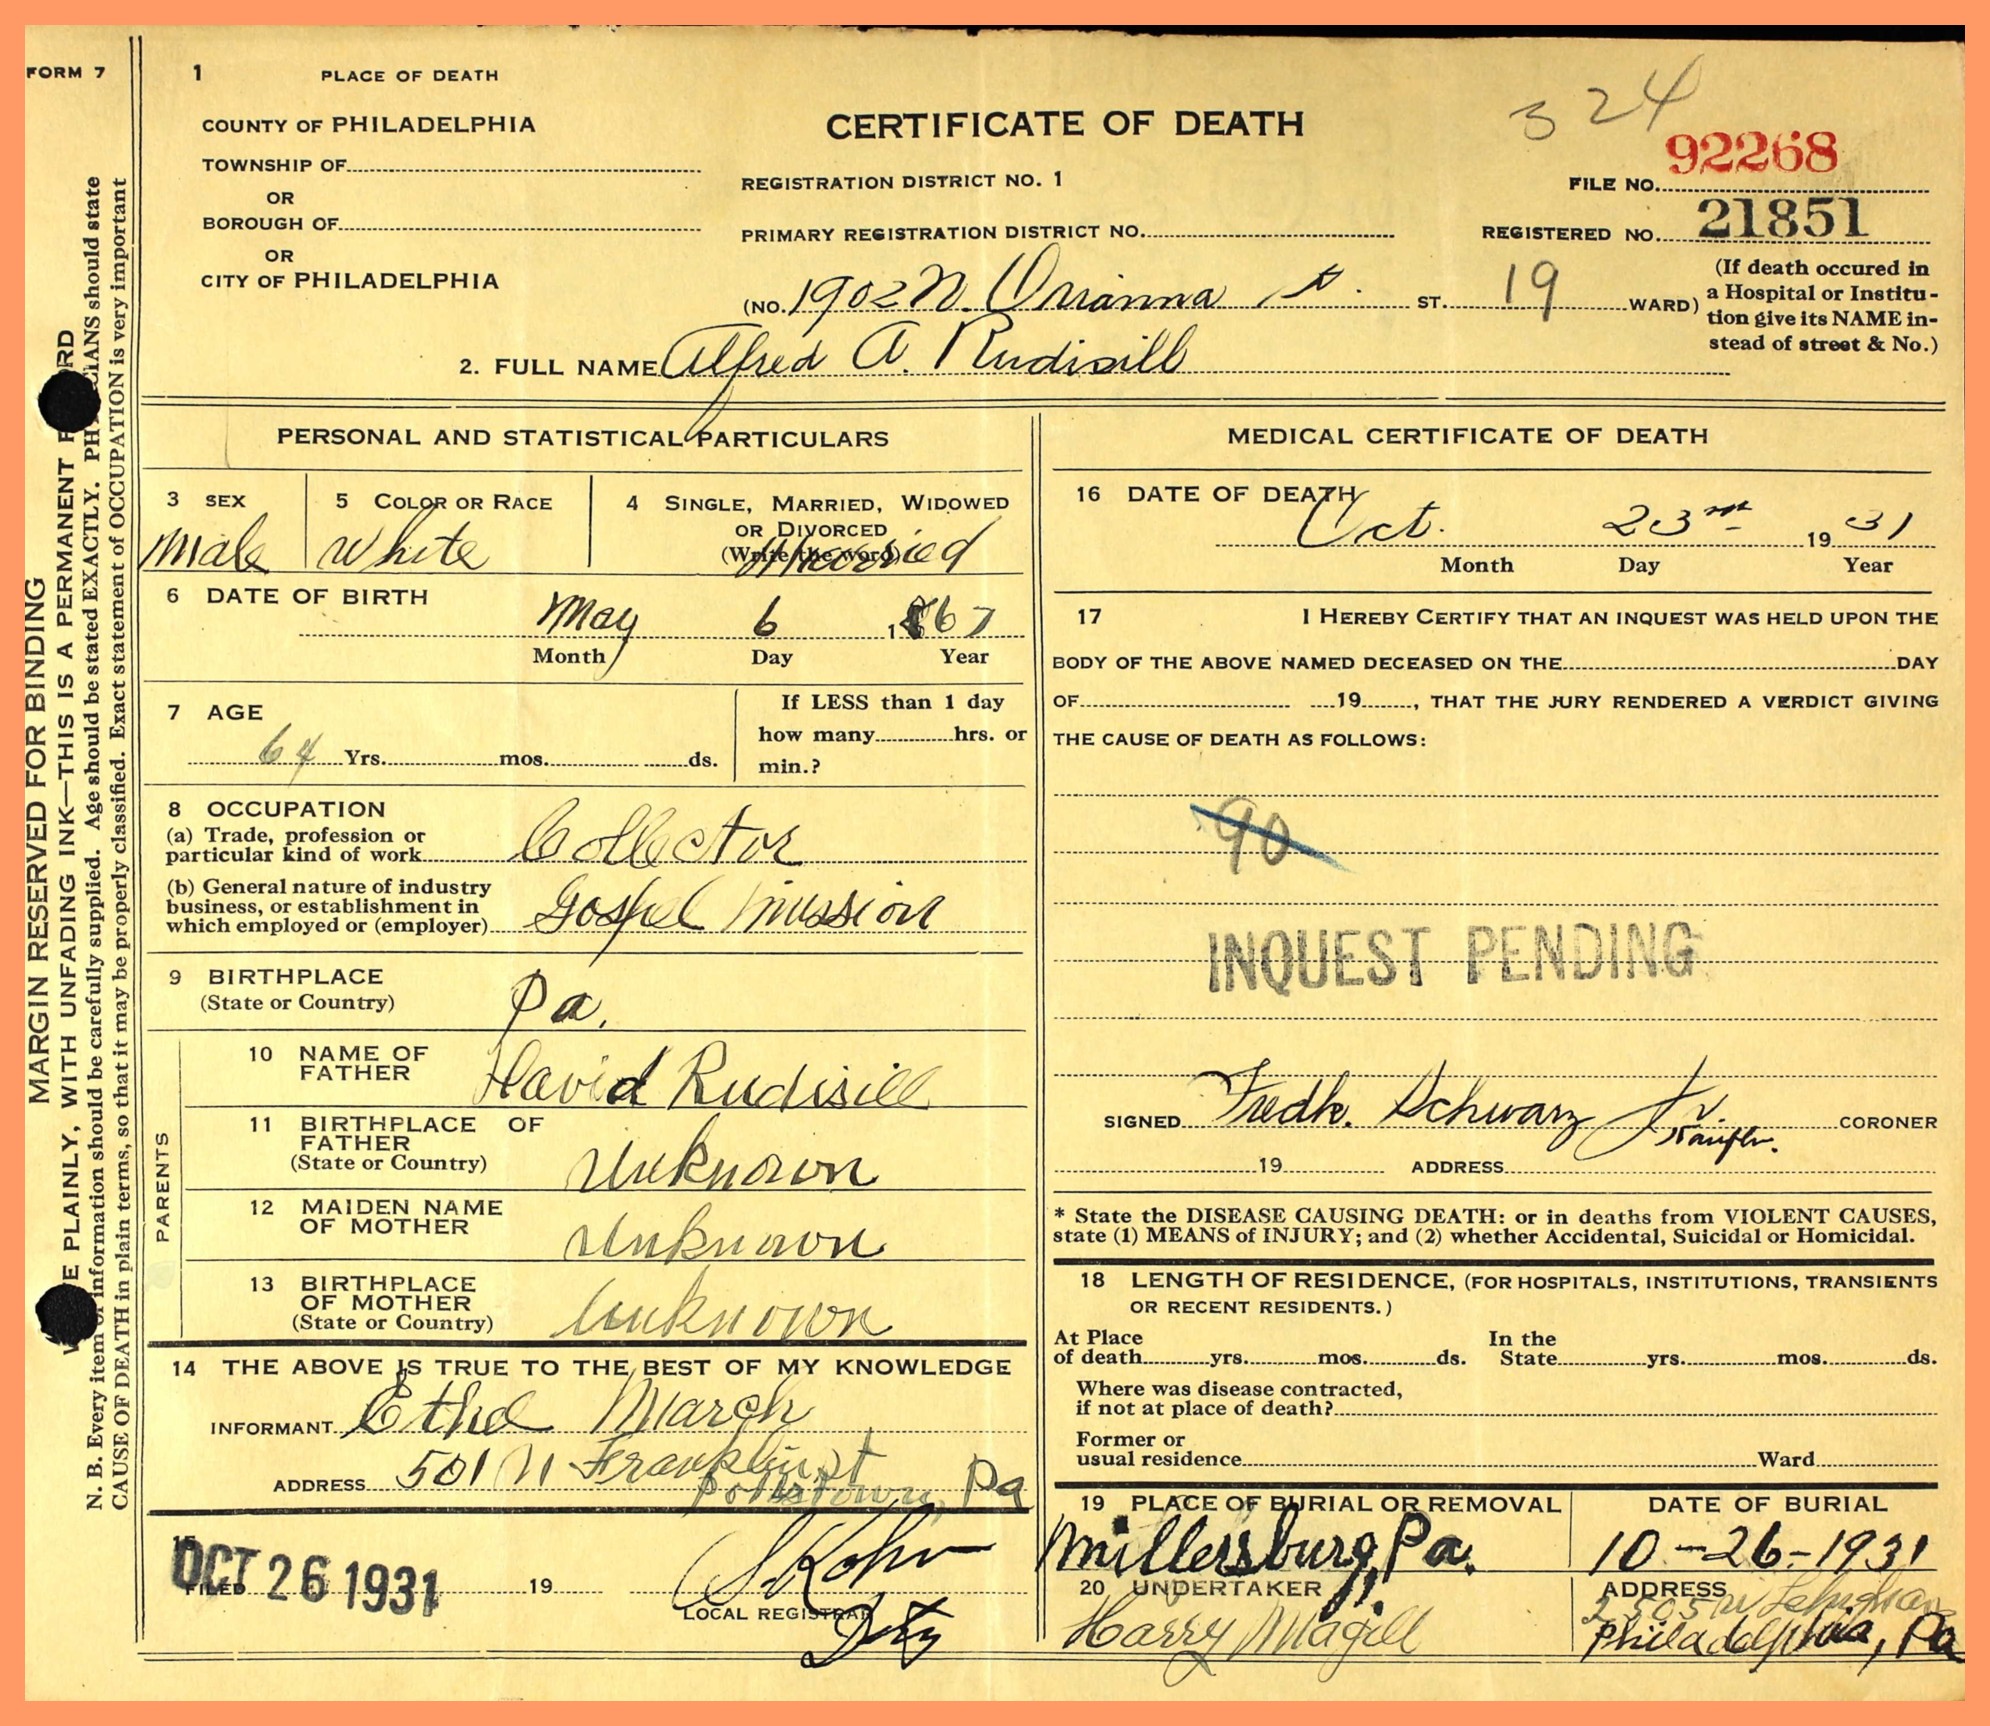 FORM 7
MARGIN RESERVED FOR BINDING
E PLAINLY, WITH UNFADING INK—THIS IS A PERMANENT
N. B. Every item of information should be carefully supplied. Age should be stated EXACTLY. PHYSICIANS should state
CAUSE OF DEATH in plain terms, so that it may be properly classified. Exact statement of OCCUPATION is very important
1 PLACE OF DEATH
COUNTY OF PHILADELPHIA
TOWNSHIP OF
OR
BOROUGH OF
OR
CITY OF PHILADELPHIA
CERTIFICATE OF DEATH
REGISTRATION DISTRICT NO. 1
PRIMARY REGISTRATION DISTRICT NO.
324
92268
FILE NO.
21851
REGISTERED NO.
(NO. 1902 N. Orianna St. ST. 19 WARD)
(If death occured in
a Hospital or Institu-
tion give its NAME in-
stead of street & No.)
2. FULL NAME Alfred A. Rudisill
PERSONAL AND STATISTICAL PARTICULARS
3 SEX
Male
5 COLOR OR RACE
White
4 SINGLE, MARRIED, WIDOWED
OR DIVORCED
(Write the word)
Married
6 DATE OF BIRTH
May 6 1867
Month Day Year
7 AGE
64 Yrs. mos. ds.
If LESS than 1 day
how many hrs. or
min.?
8 OCCUPATION
(a) Trade, profession or
particular kind of work Collector
(b) General nature of industry
business, or establishment in
which employed or (employer) Gospel Mission
9 BIRTHPLACE
(State or Country) Pa.
PARENTS
10 NAME OF
FATHER David Rudisill
11 BIRTHPLACE OF
FATHER
(State or Country) Unknown
12 MAIDEN NAME
OF MOTHER Unknown
13 BIRTHPLACE
OF MOTHER
(State or Country) Unknown
14 THE ABOVE IS TRUE TO THE BEST OF MY KNOWLEDGE
INFORMANT Ethel March
ADDRESS 501 N Franklin St
Pottstown, Pa
15
FILED OCT 26 1931 19
S. Kohn
LOCAL REGISTRAR
MEDICAL CERTIFICATE OF DEATH
16 DATE OF DEATH
Oct. 23rd 1931
Month Day Year
17 I HEREBY CERTIFY THAT AN INQUEST WAS HELD UPON THE
BODY OF THE ABOVE NAMED DECEASED ON THE DAY
OF 19 , THAT THE JURY RENDERED A VERDICT GIVING
THE CAUSE OF DEATH AS FOLLOWS:
90
INQUEST PENDING
SIGNED Fredk. Schwarz Jr. CORONER
19 ADDRESS
* State the DISEASE CAUSING DEATH: or in deaths from VIOLENT CAUSES,
state (1) MEANS of INJURY; and (2) whether Accidental, Suicidal or Homicidal.
18 LENGTH OF RESIDENCE, (FOR HOSPITALS, INSTITUTIONS, TRANSIENTS
OR RECENT RESIDENTS.)
At Place
of death yrs. mos. ds.
In the
State yrs. mos. ds.
Where was disease contracted,
if not at place of death?
Former or
usual residence Ward
19 PLACE OF BURIAL OR REMOVAL
Millersburg, Pa.
DATE OF BURIAL
10-26-1931
20 UNDERTAKER
Harry Magill
ADDRESS
2505 W Lehigh
Philadelphia, Pa